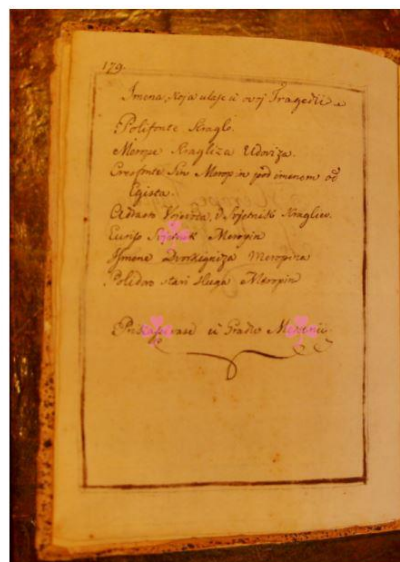 179.
Imena, koja ulaze u ovoj Tragedii
Polifonte Kragl.
Merope Kragliza Udoviza.
Cresfonte Sin Merop in pod imenom od
Egista.
Adrasto Vojvoda, Svjetnik Kragliev.
Euriso Meropin
Ismene Meropina
Polidor stari sluga Meropin
u Gradu